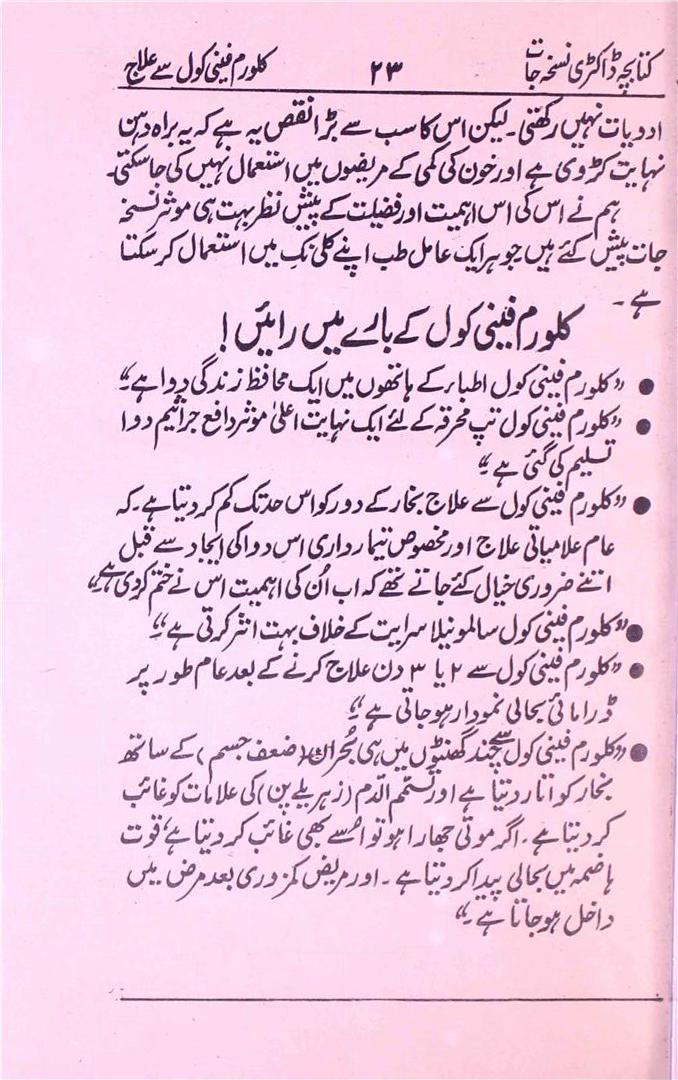 کتابچہ ڈاکٹری نسخہ جات ۲۳ کلورم فینی کول سے علاج
ادویات نہیں رکھتی۔ لیکن اس کا سب سے بڑا نقص یہ ہے کہ یہ براہ دہن
نہایت کڑوی ہے اور خون کی کمی کے مریضوں میں استعمال نہیں کی جاسکتی۔
ہم نے اس کی اس اہمیت اور فضیلت کے پیش نظر بہت ہی موثر نسخہ
جات پیش کئے ہیں جو ہر ایک عامل طب اپنے کلی نک میں استعمال کر سکتا
ہے۔
کلورم فینی کول کے بارے میں رائیں !
● "کلورم فینی کول اطباء کے ہاتھوں میں ایک محافظ زندگی دوا ہے۔"
● "کلورم فینی کول تپ محرقہ کے لئے ایک نہایت اعلیٰ موثر دافع جراثیم دوا
تسلیم کی گئی ہے۔"
● "کلورم فینی کول سے علاج بخار کے دور کو اس حد تک کم کر دیتا ہے۔ کہ
عام علامیاتی علاج اور مخصوص تیمارداری اس دوا کی ایجاد سے قبل
اتنے ضروری خیال کئے جاتے تھے کہ اب اُن کی اہمیت اس نے ختم کر دی ہے۔"
● "کلورم فینی کول سالمونیلا سرایت کے خلاف بہت اثر کرتی ہے۔"
● "کلورم فینی کول سے ۲ یا ۳ دن علاج کرنے کے بعد عام طور پر
ڈرامائی بحالی نمودار ہو جاتی ہے۔"
● "کلورم فینی کول سے چند گھنٹوں میں ہی بُحران (ضعف جسم) کے ساتھ
بخار کو اتار دیتا ہے اور تسمم الدم (زہریلے پن) کی علامات کو غائب
کر دیتا ہے۔ اگر موتی جھارا ہو تو اُسے بھی غائب کر دیتا ہے، قوت
ہاضمہ میں بحالی پیدا کر دیتا ہے۔ اور مریض کمزوری بعد مرض میں
داخل ہو جاتا ہے۔"